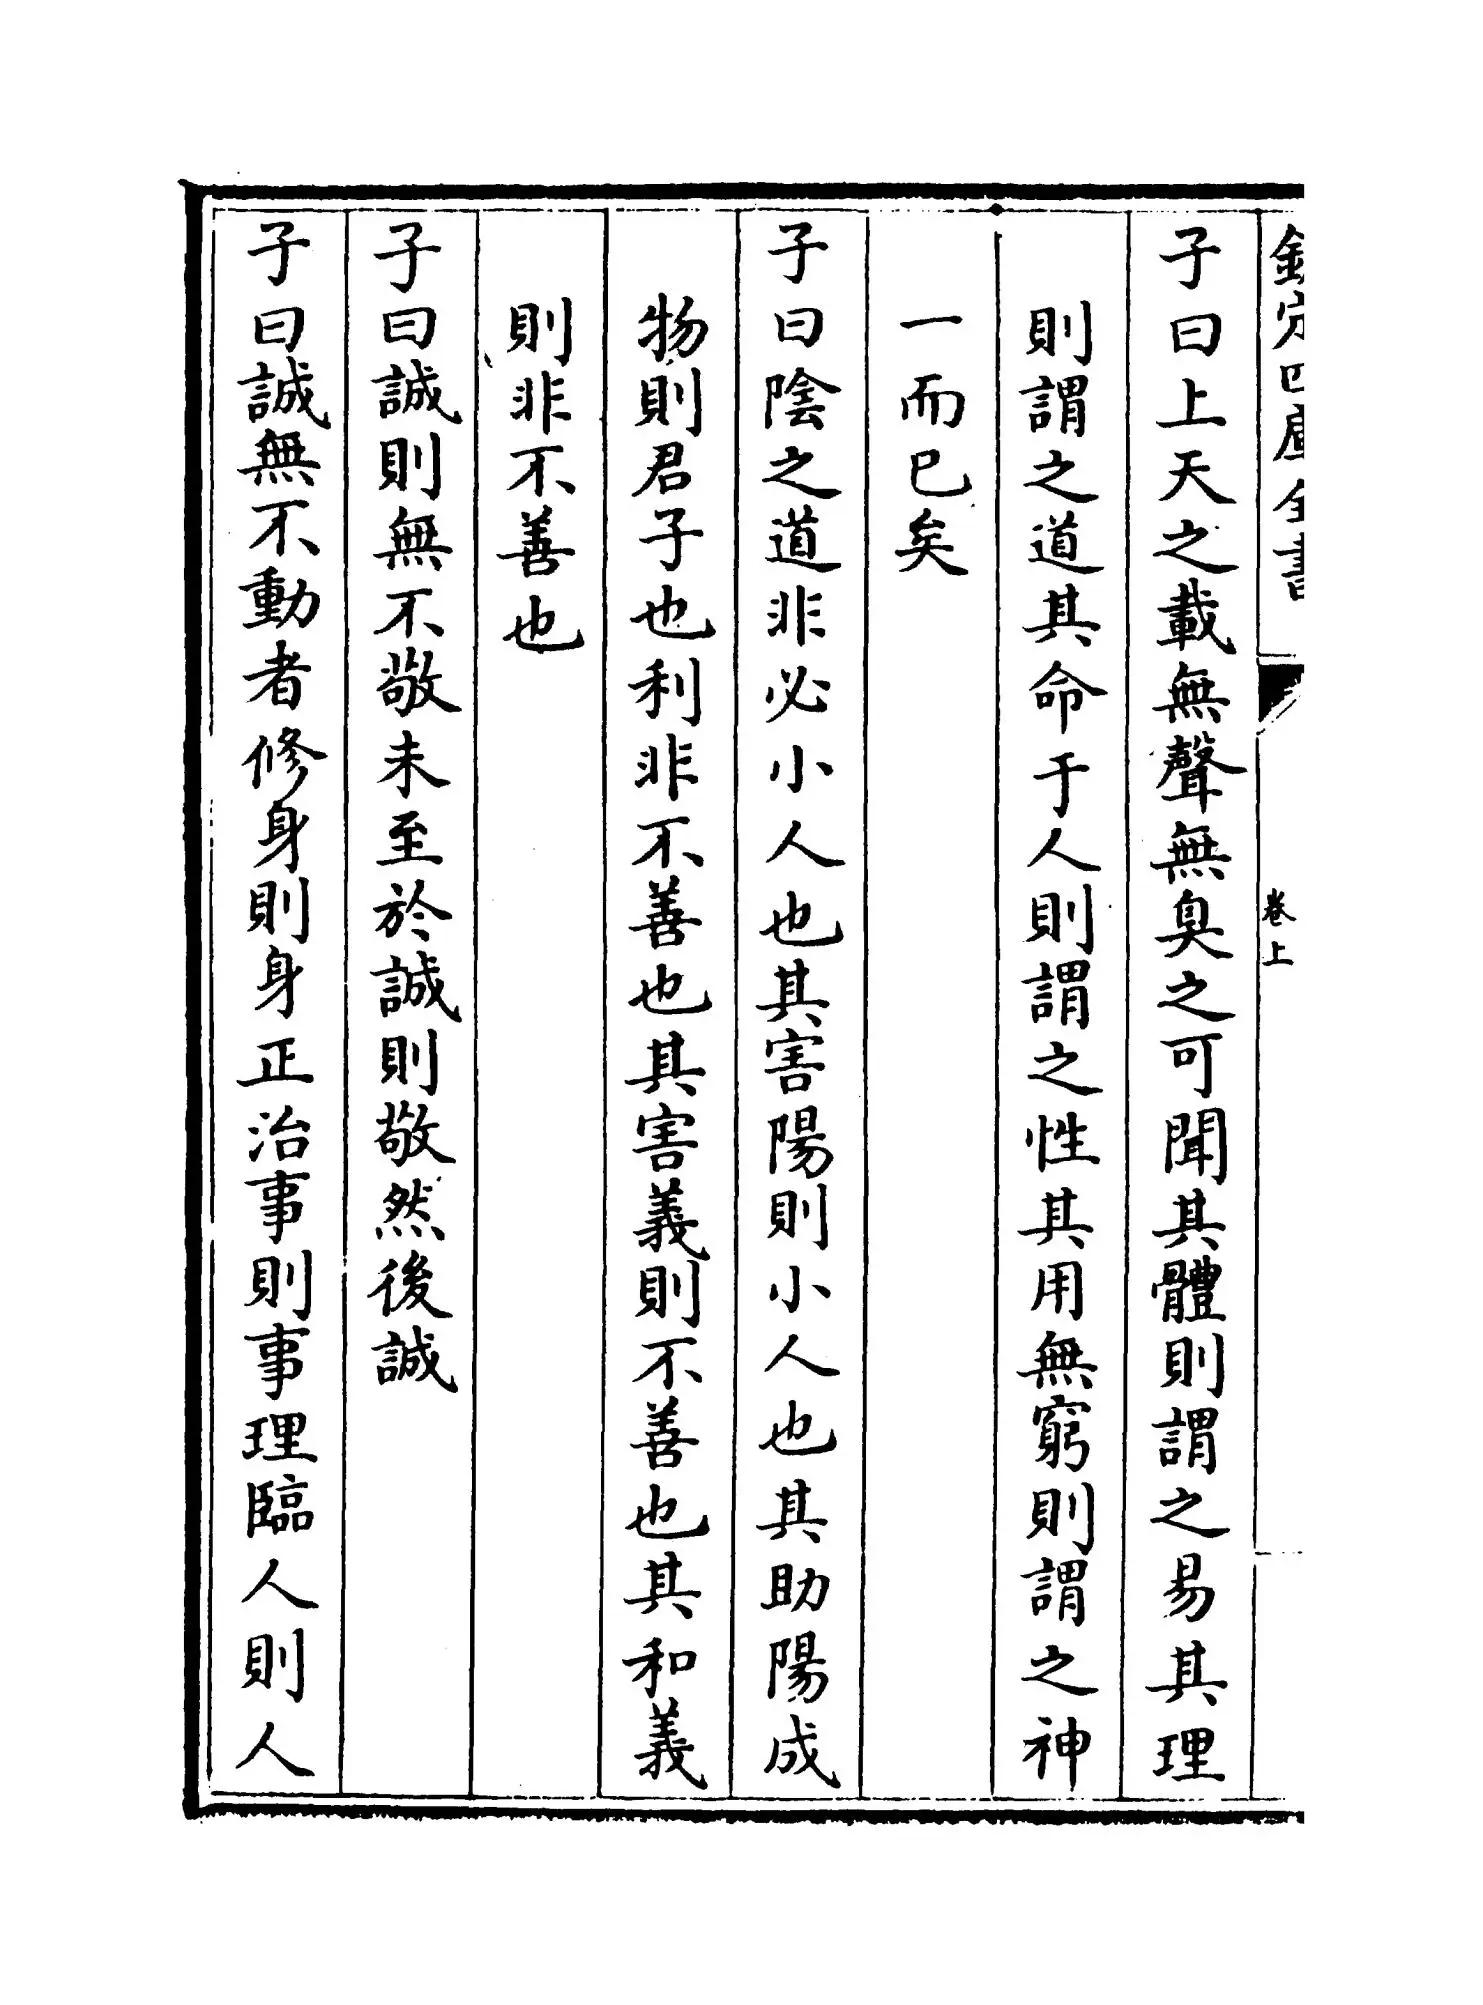 欽定四庫全書
卷上
子曰上天之載無聲無臭之可聞其體則謂之易其理
則謂之道其命于人則謂之性其用無窮則謂之神
一而已矣
子曰陰之道非必小人也其害陽則小人也其助陽成
物則君子也利非不善也其害義則不善也其和義
則非不善也
子曰誠則無不敬未至於誠則敬然後誠
子曰誠無不動者修身則身正治事則事理臨人則人